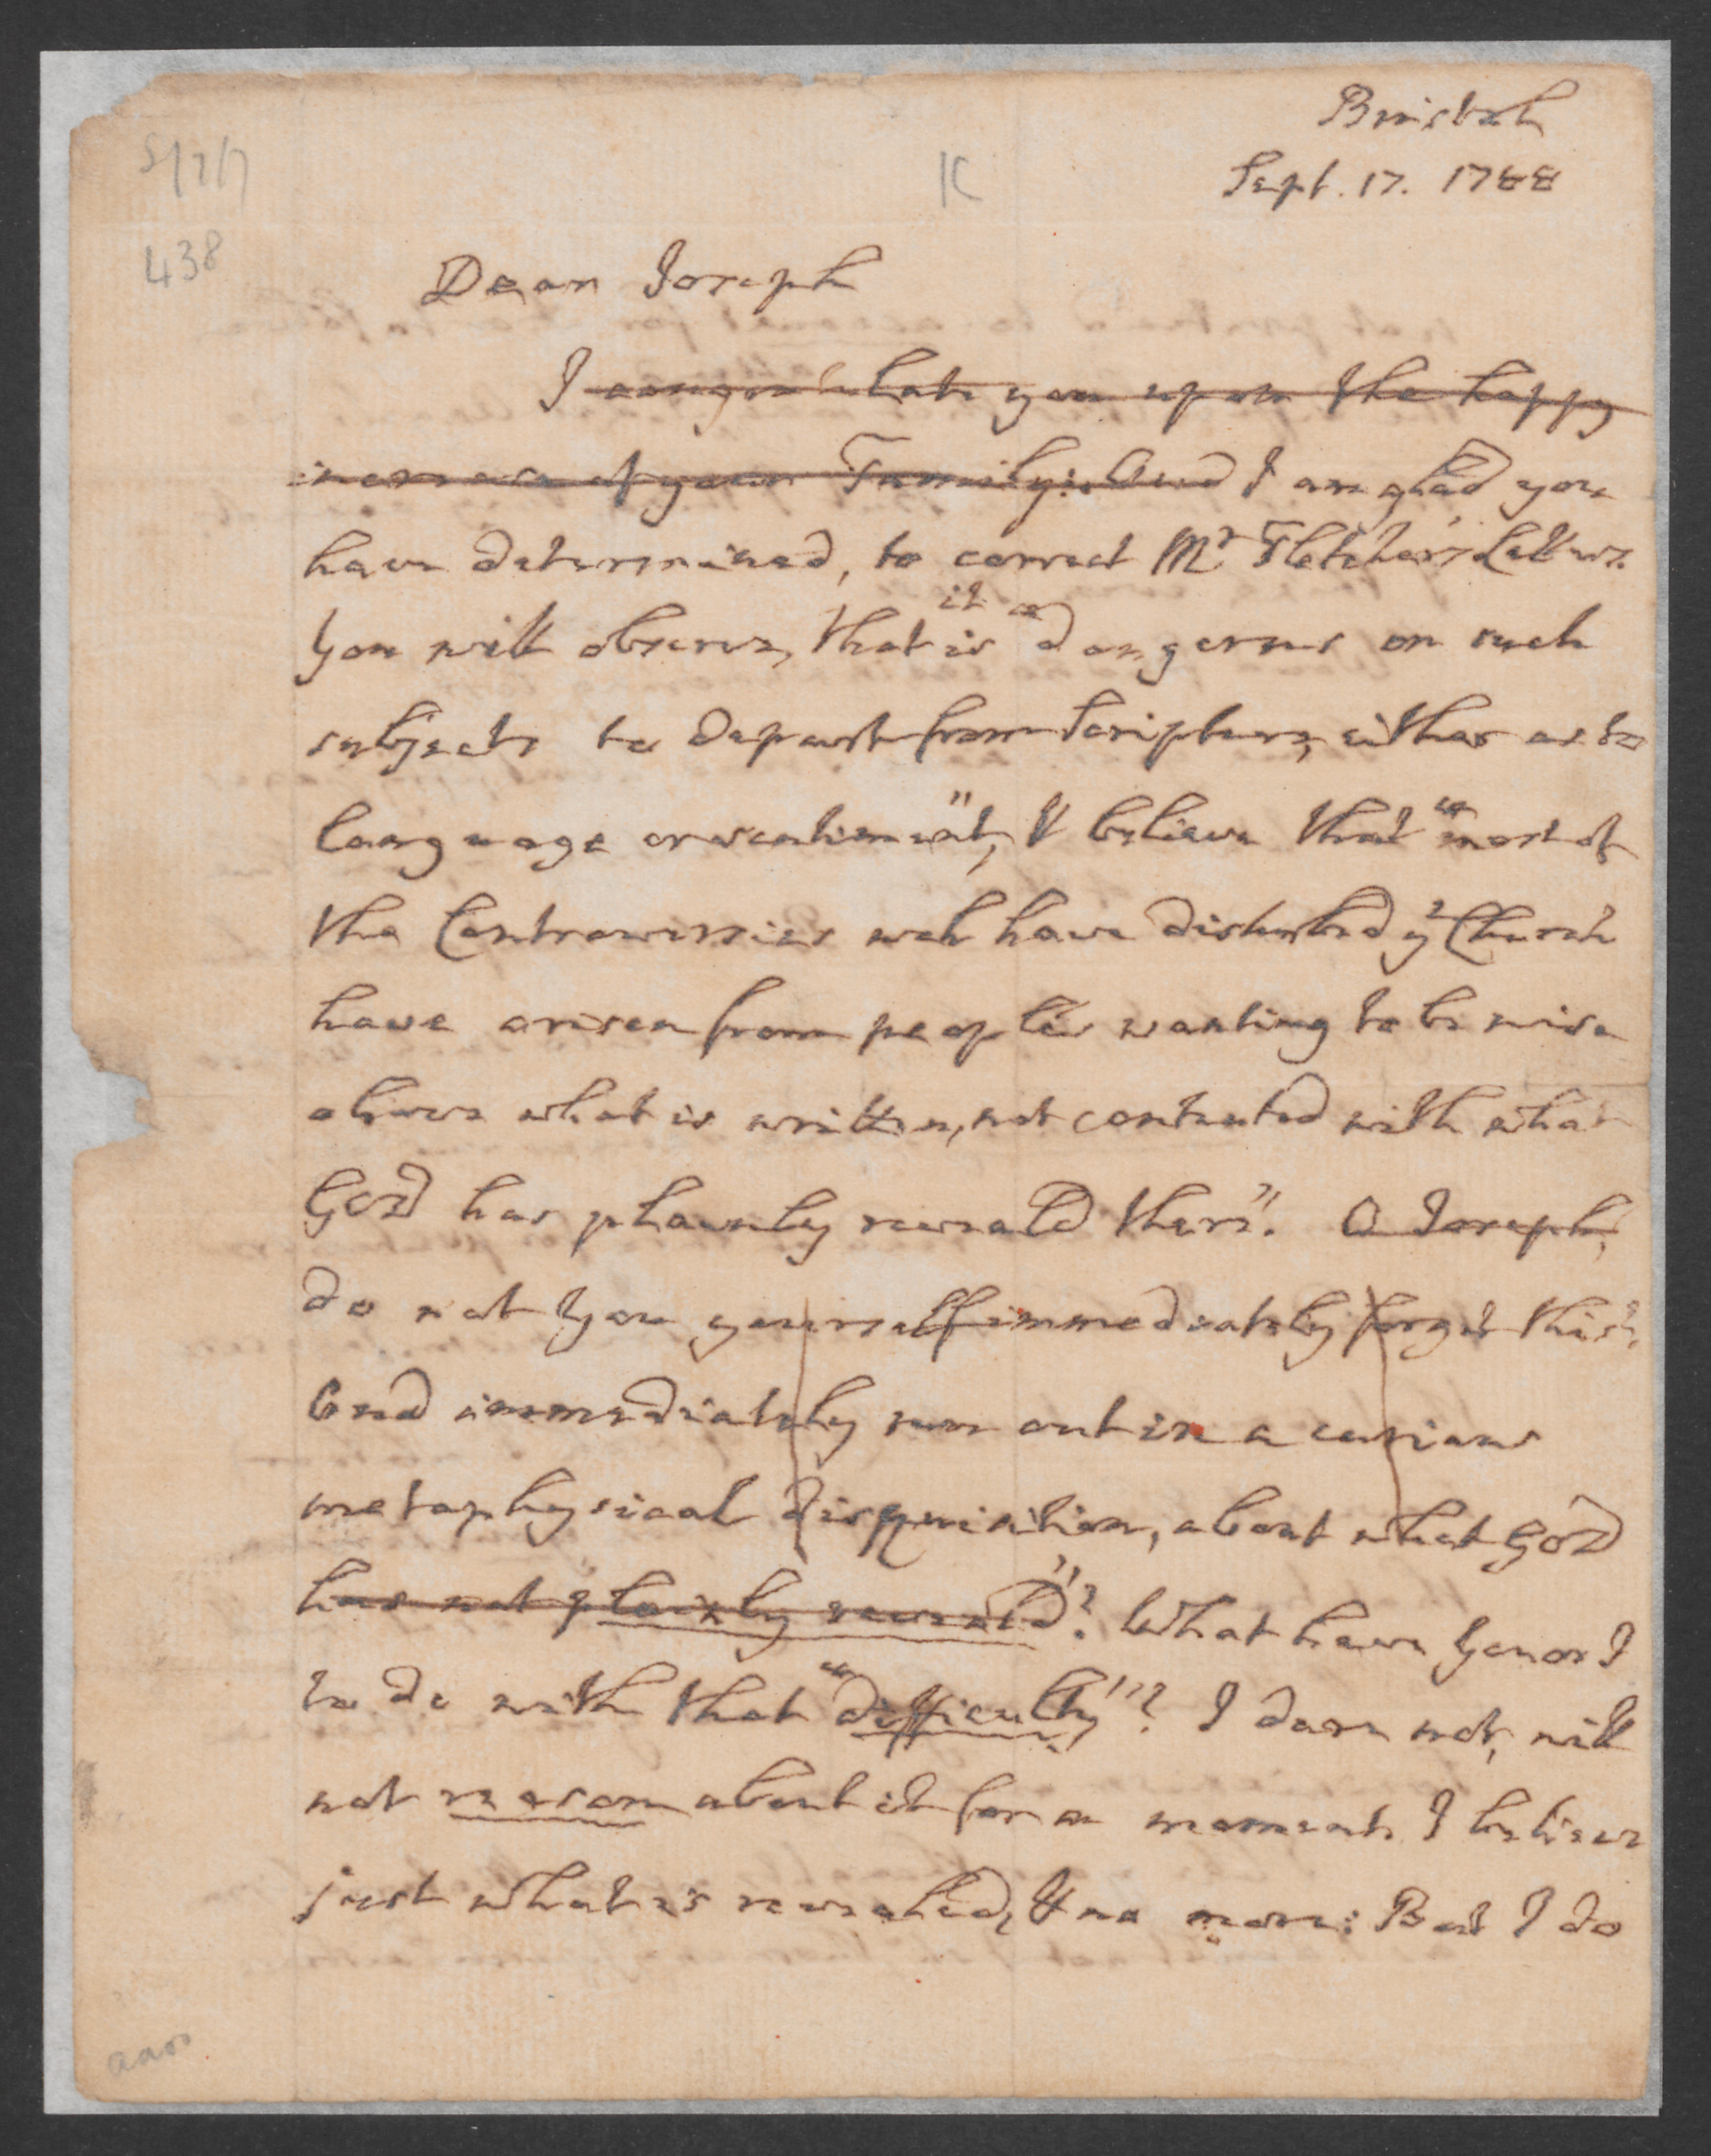 S/7/7
K
438
Bristol
Sept. 17. 1788
Dear Joseph
I congratulate you upon the happy
increase of your Family: And I am glad you
have determined, to correct Mr Fletcher's Letters.
You will observe, that "it is dangerous on such
subjects to depart from Scripture, either as to
language or sentiment", I believe that "most of
the Controversies wch have disturbed ye Church
have arisen from people's wanting to be wise
above what is written, not contented with what
God has plainly reveald there". O Joseph,
do not You yourself immediately forget this?
And immediately run out in a curious
metaphysical disquisition, about what God
has not "plainly reveald"? What have You or I
to do with that "difficulty"? I dare not, will
not reason about it for a moment. I believe
just what is revealed, & no more: But I do